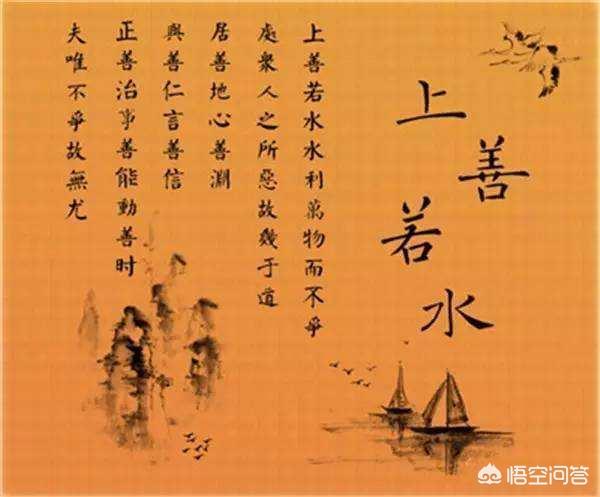 上善若水
上善若水水利萬物而不爭
處衆人之所惡故幾于道
居善地心善淵
與善仁言善信
正善治事善能動善时
夫唯不爭故無尤
悟空问答